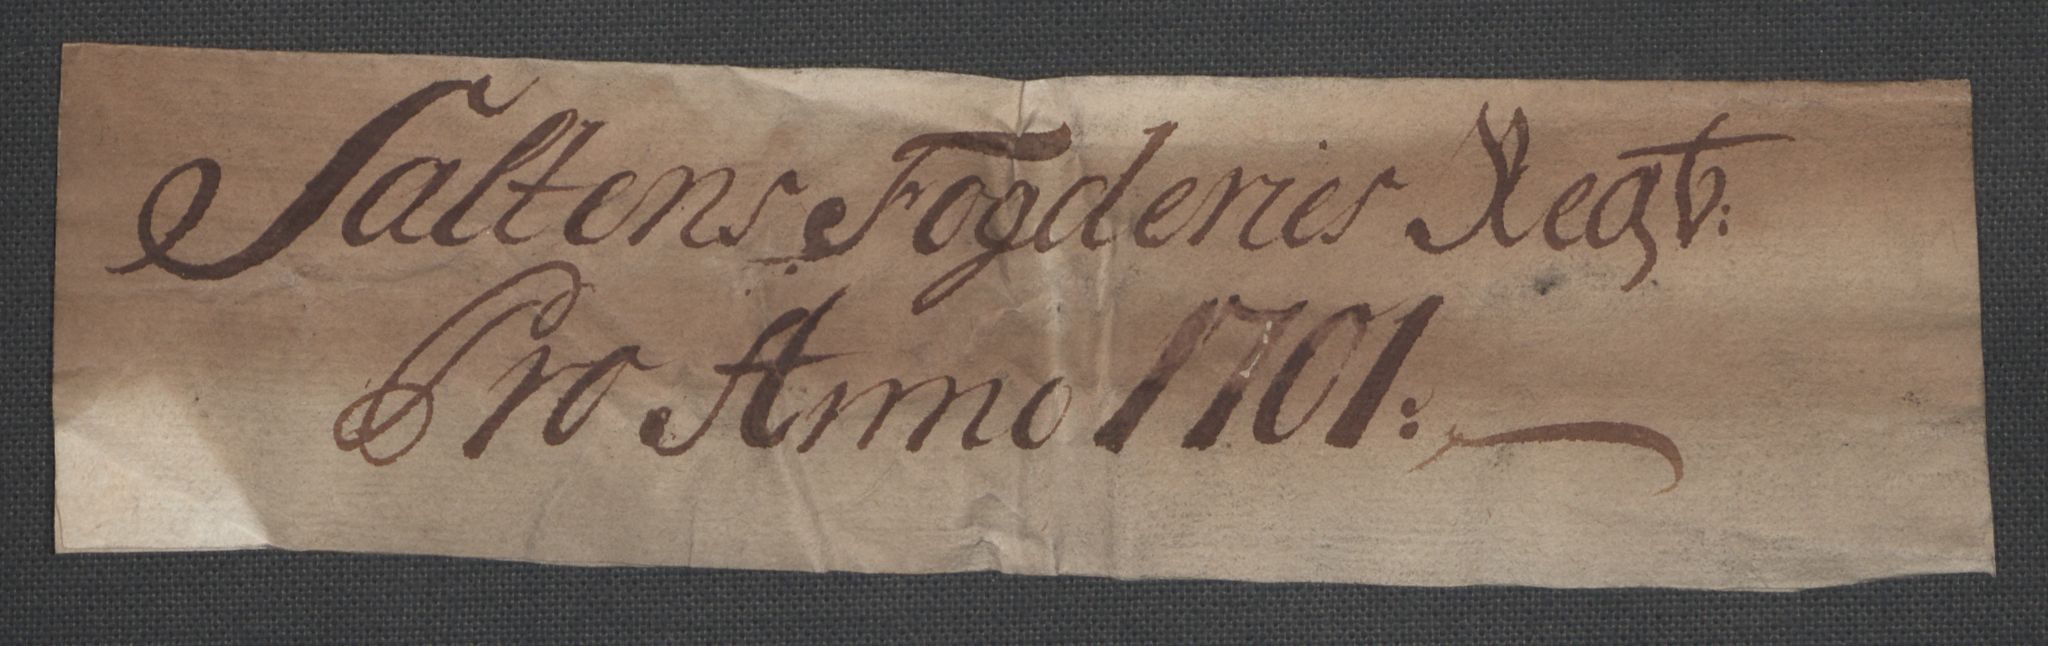 Saltens Fogderies Regb:
Pro Anno 1701: